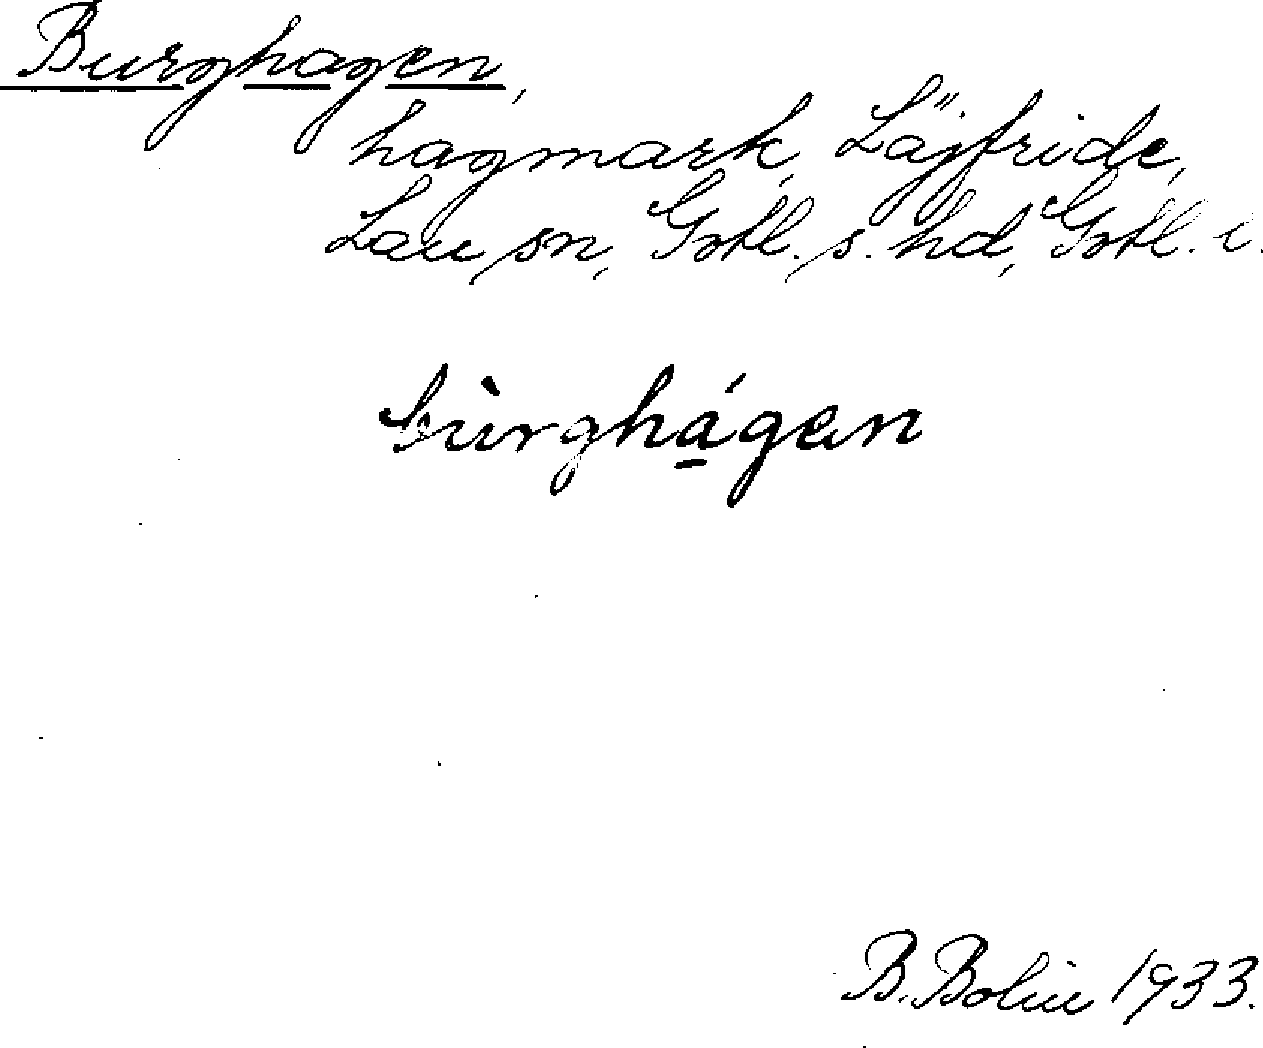 Burghagen,
hagmark, Läjfride,
Lau sn, Gotl. s. hd, Gotl. l.
bùrghá̱gen
B. Bolin 1933.